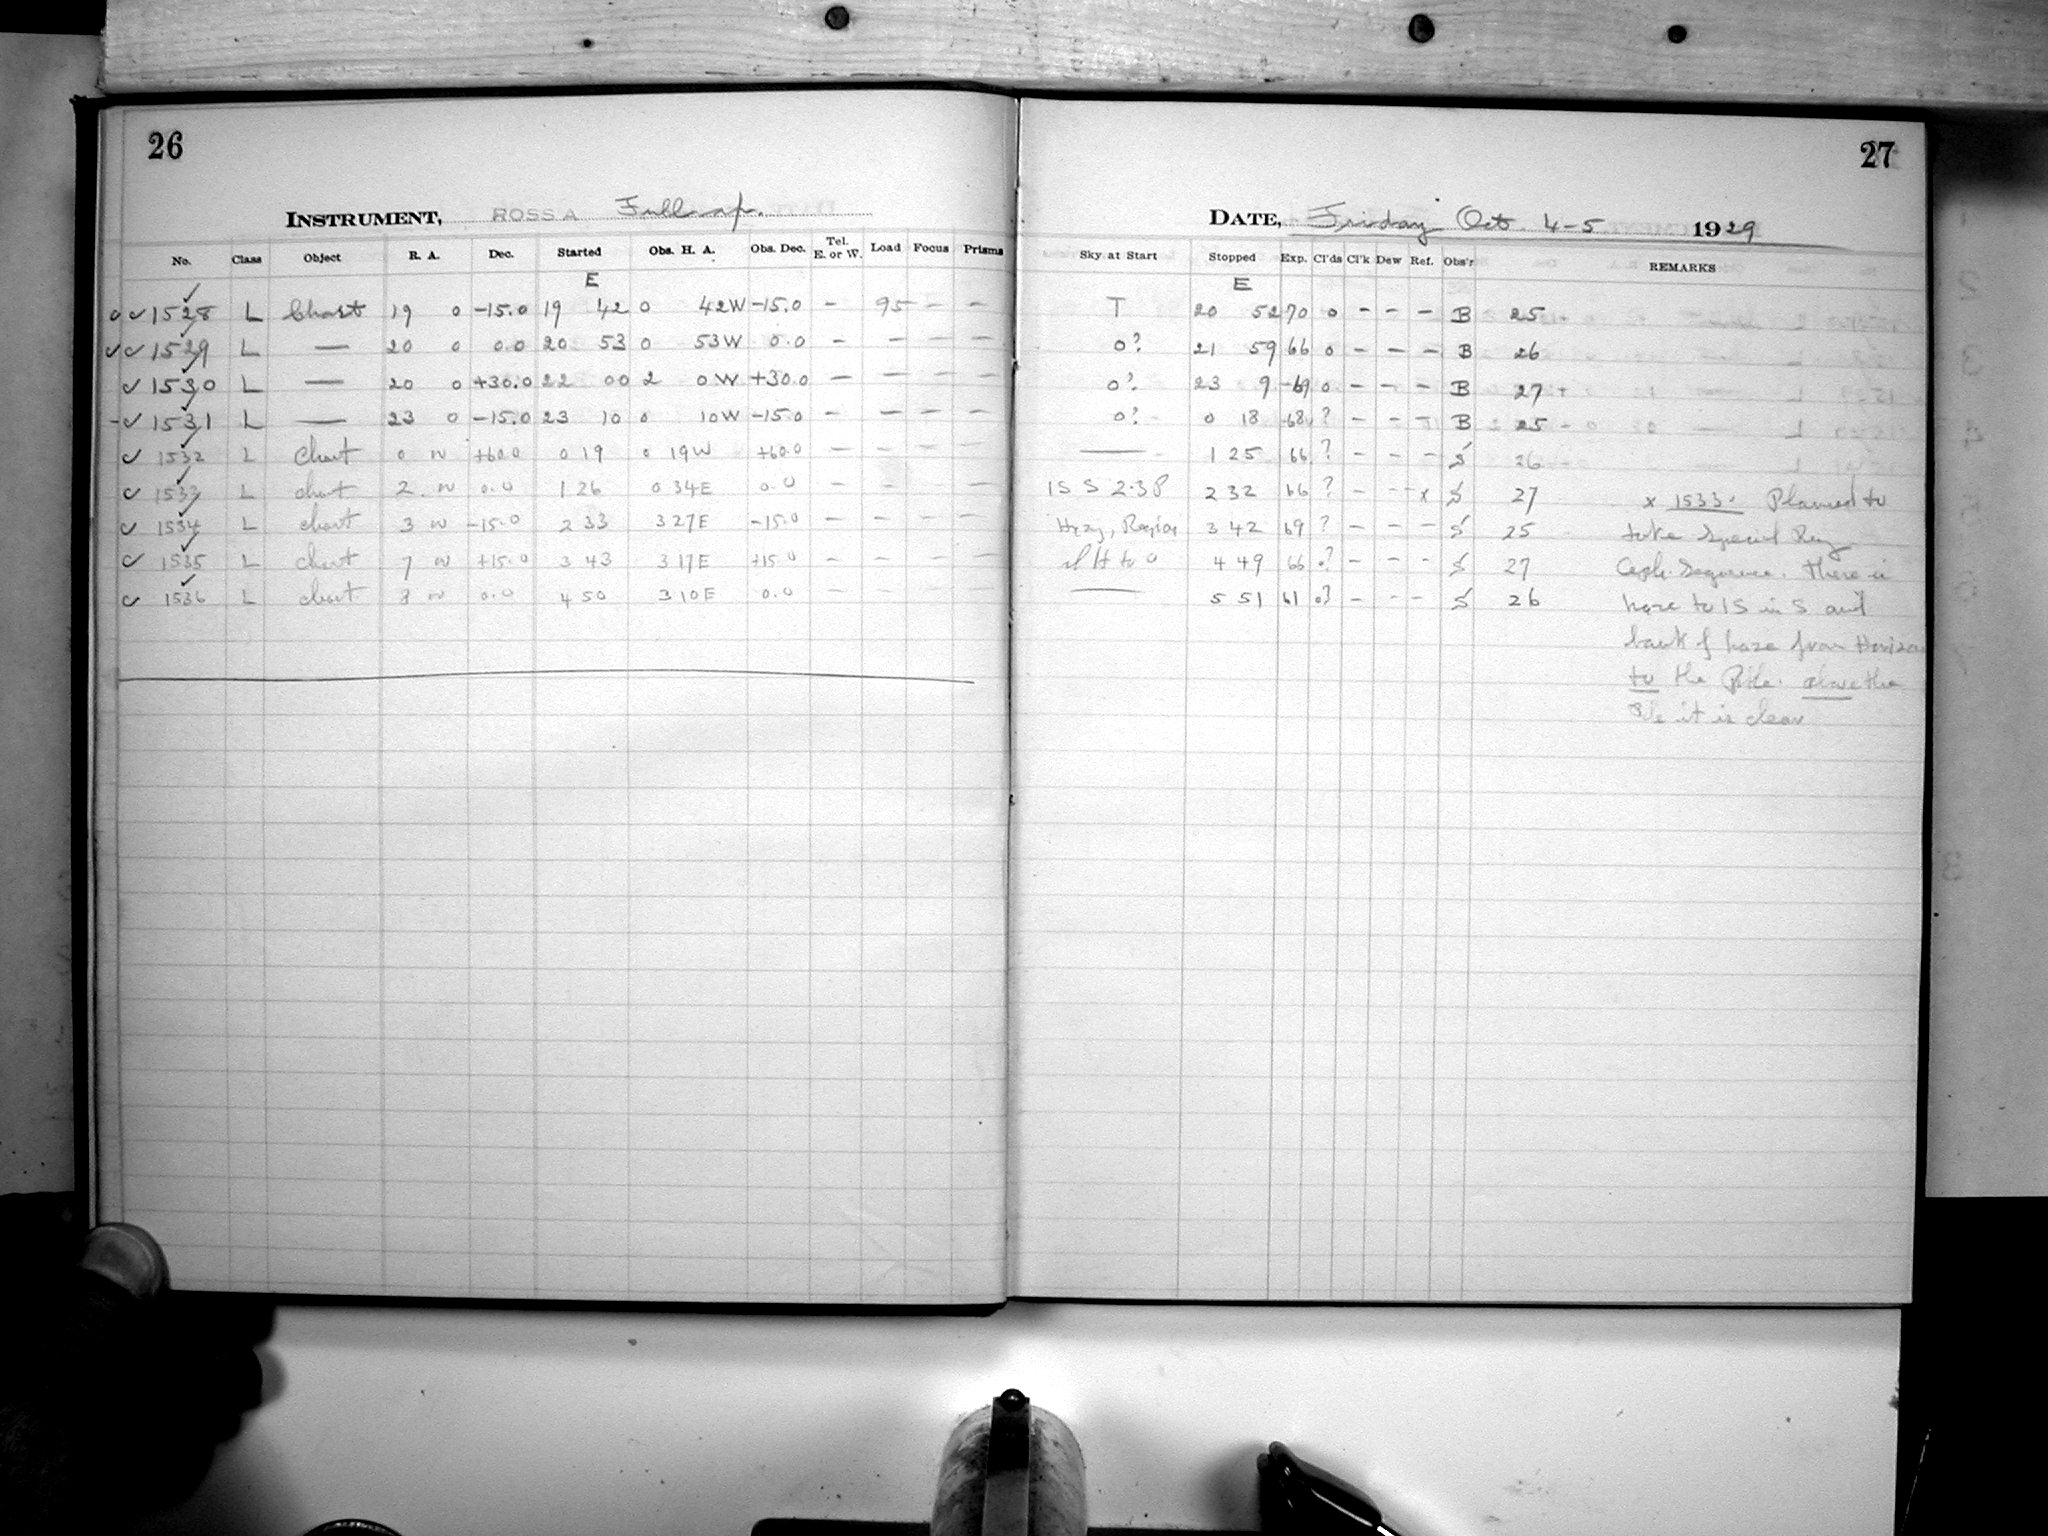 26
INSTRUMENT, ROSS A Full ap.
No. Class Object R. A. Dec. Started Obs. H. A. Obs. Dec. Tel. E. or W. Load Focus Prisms
E
1528 L Chart 19 0 -15.0 19 42 0 42W -15.0 - 95 - -
1529 L — 20 0 0.0 20 53 0 53W 0.0 - - - -
1530 L — 20 0 +30.0 22 00 2 0W +30.0 - - - -
1531 L — 23 0 -15.0 23 10 0 10W -15.0 - - - -
1532 L chart 0 +60.0 0 19 0 19W +60.0 - - - -
1533 L chart 2 0.0 1 26 0 34E 0.0 - - - -
1534 L chart -15.0 2 33 3 27E -15.0 - - - -
1535 L chart 7 +15.0 3 43 3 17E +15.0 - - - -
1536 L chart 8 0.0 4 50 3 10E 0.0 - - - -
27
DATE, Friday Oct. 4-5 1929
Sky at Start Stopped Exp. Cl'ds Cl'k Dew Ref. Obs'r REMARKS
E
T 20 52 70 0 - - - B 25
0? 21 59 66 0 - - - B 26
0? 23 9 69 0 - - - B 27
0? 0 18 68 ? - - - B 25
— 1 25 66 ? - - - S 26
1S S 2·3P 2 32 66 ? - - x S 27 x 1533. Planned to
Hazy, Region 3 42 69 ? - - - S 25 take special
0 4 49 66 0? - - - S 27 Ceph. Sequence. There is
— 5 51 61 0? - - - S 26 haze to 1S in S and
bank of haze from Horizon
to the Pole. above the
Pole it is clear